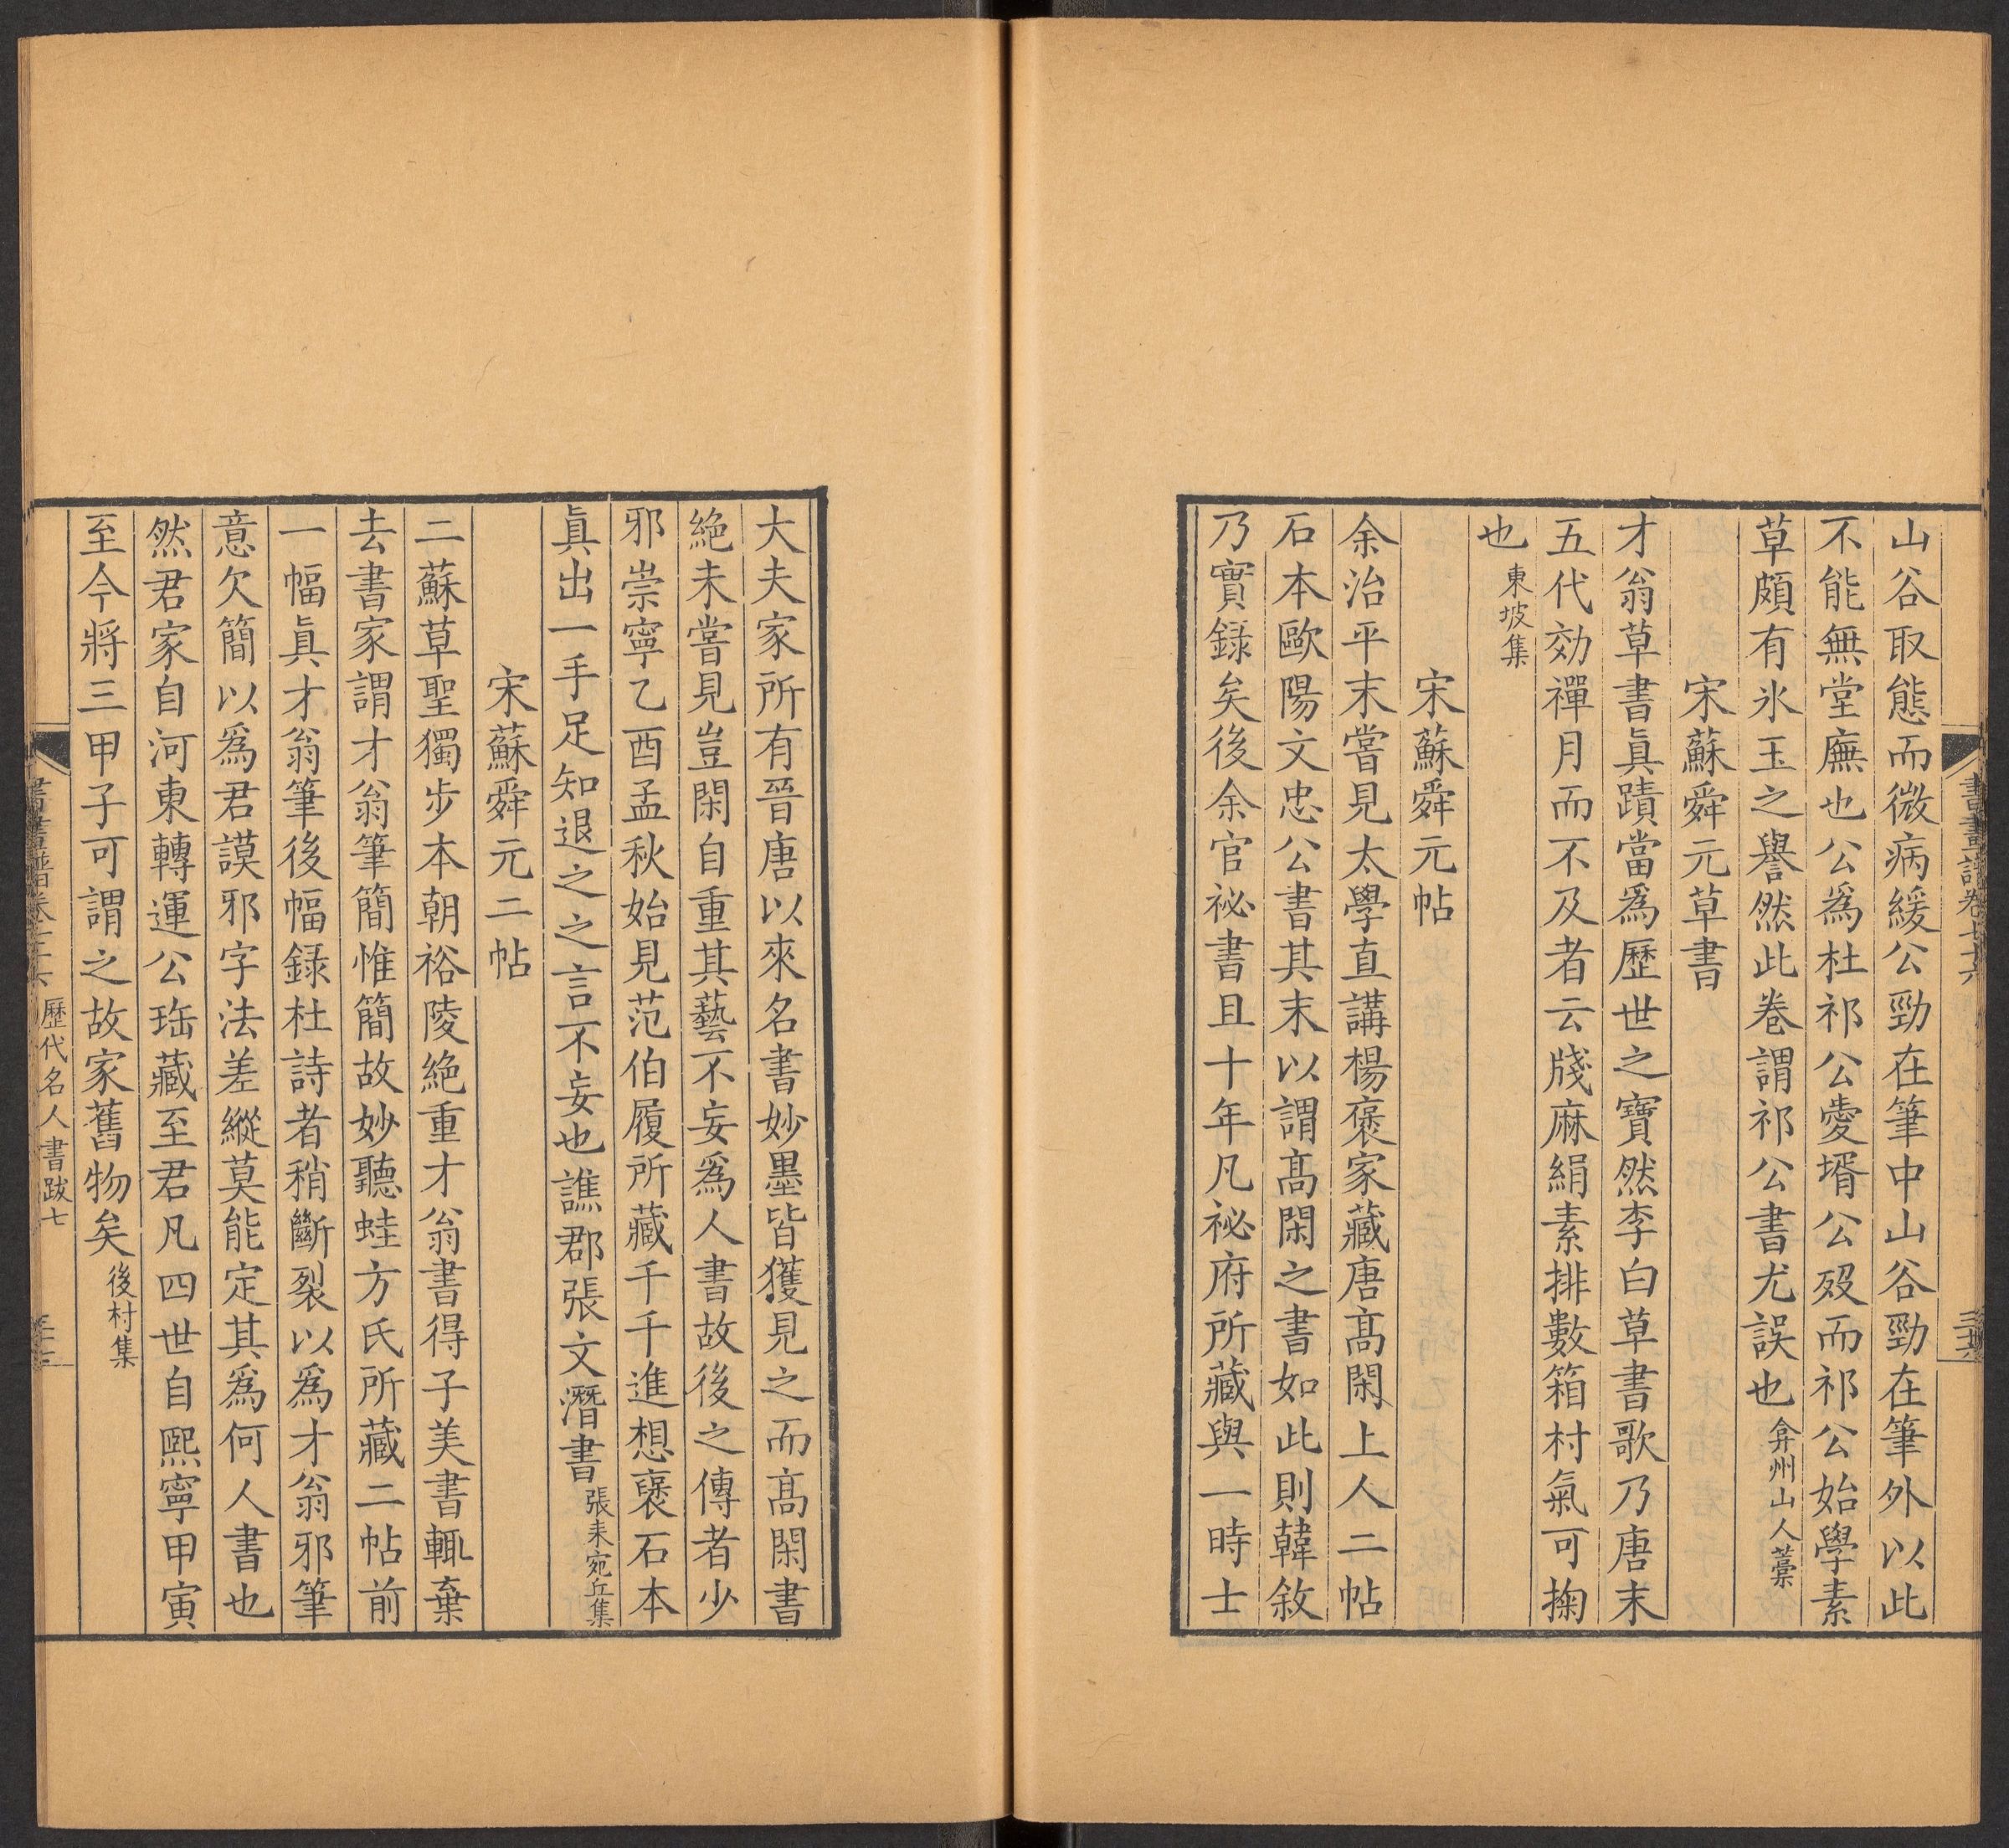 書畫譜卷七十六
山谷取態而微病緩公勁在筆中山谷勁在筆外以此
不能無堂廡也公爲杜祁公愛壻公殁而祁公始學素
草頗有氷玉之譽然此卷謂祁公書尤誤也 弇州山人藁
宋蘇舜元草書
才翁草書眞蹟當爲歷世之寶然李白草書歌乃唐末
五代効禪月而不及者云牋麻絹素排數箱村氣可掬
也 東坡集
宋蘇舜元帖
余治平末嘗見太學直講楊褒家藏唐髙閑上人二帖
石本歐陽文忠公書其末以謂髙閑之書如此則韓敘
乃實録矣後余官祕書且十年凡祕府所藏與一時士
大夫家所有晉唐以來名書妙墨皆獲見之而髙閑書
絶未嘗見豈閑自重其藝不妄爲人書故後之傳者少
邪崇寧乙酉孟秋始見范伯履所藏千千進想襃石本
眞出一手足知退之之言不妄也譙郡張文潛書 張耒宛丘集
宋蘇舜元二帖
二蘇草聖獨步本朝裕陵絶重才翁書得子美書輒棄
去書家謂才翁筆簡惟簡故妙聽蛙方氏所藏二帖前
一幅眞才翁筆後幅録杜詩者稍斷裂以爲才翁邪筆
意欠簡以爲君謨邪字法差縱莫能定其爲何人書也
然君家自河東轉運公珤藏至君凡四世自熙寧甲寅
至今將三甲子可謂之故家舊物矣 後村集
歷代名人書跋七